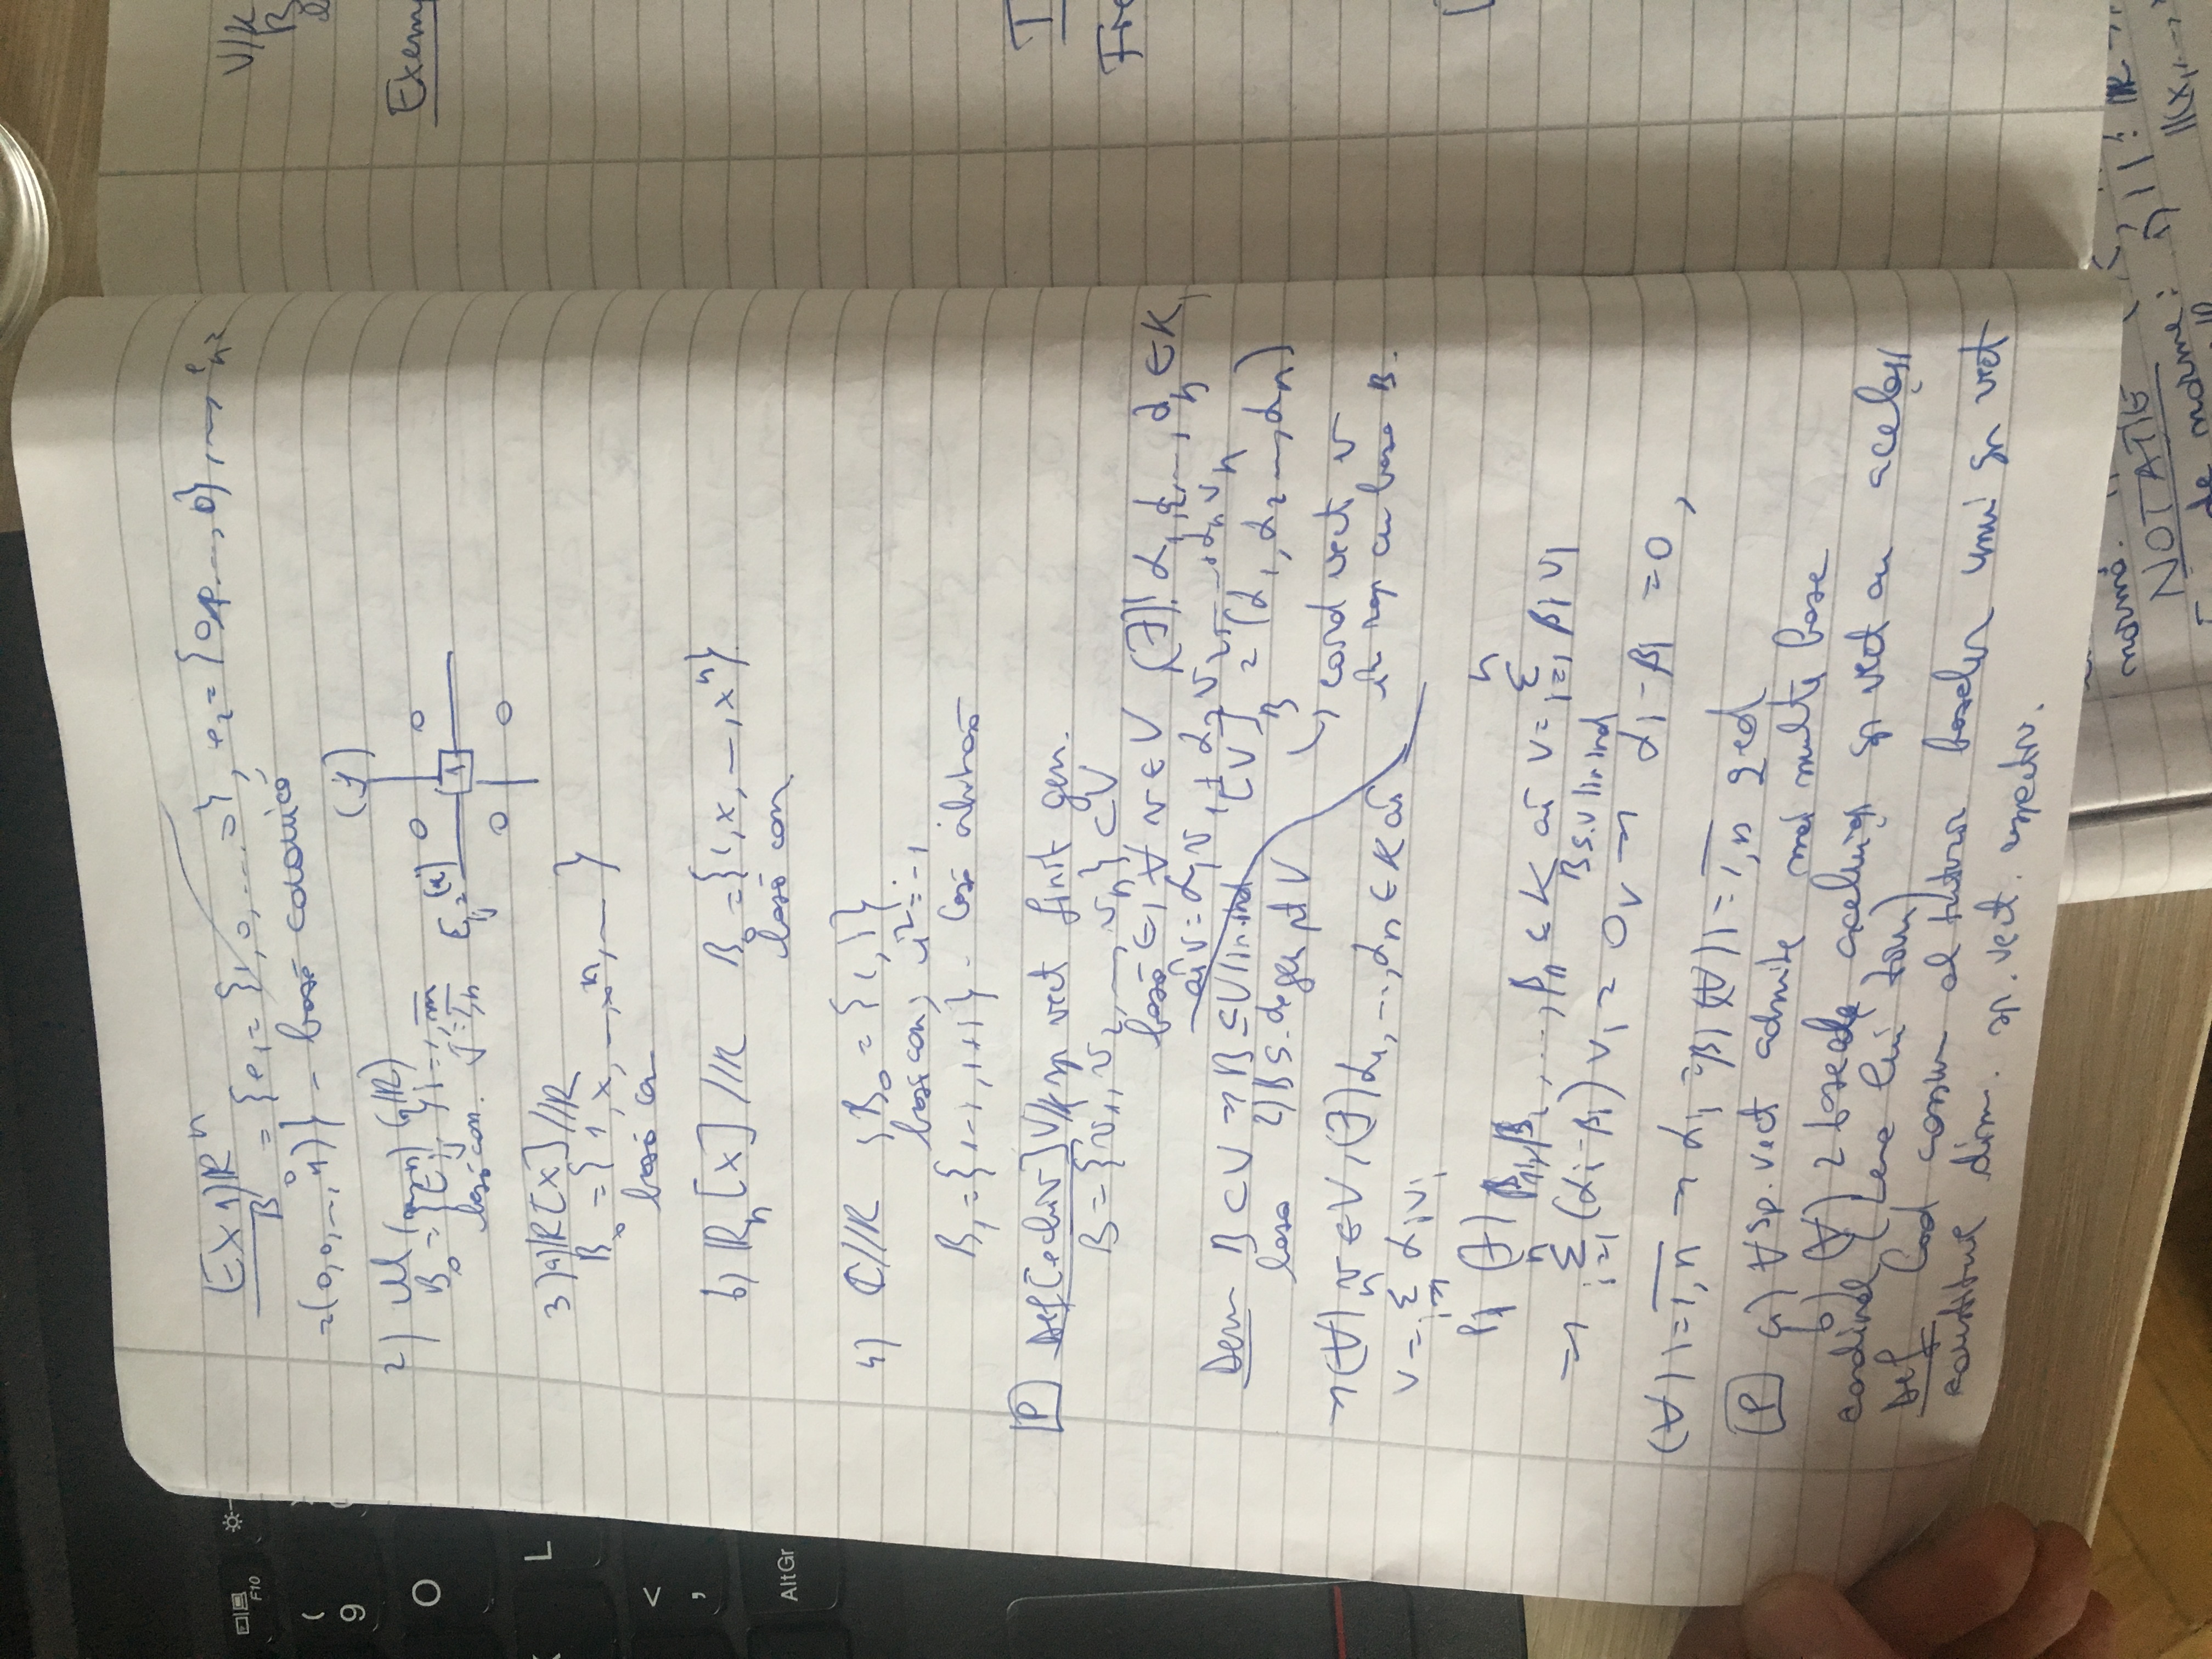 Ex 1) ℝⁿ
B₀ = {e₁ = {1, 0, ... 0}, e₂ = {0, 1, ..., 0}, ..., eₙ =
= (0, 0, ..., 1)} - bază canonică
2) M(m×n) (ℝ)
B₀ = {Eij} i = 1,m
bază can. j = 1,n
(j)
Eij = (i) 0 0 1 0 0
3) a) ℝ[X] /ℝ
B₀ = {1, x, ..., xⁿ, ...}
bază can
b) ℝₙ[X] /ℝ B₀ = {1, x, ..., xⁿ}
bază can
4) ℂ/ℝ ; B₀ = {1, i}
bază can, i² = -1
B₁ = {1-i, 1+i} - bază arbitrară
P Def [echiv] V/K sp vect finit gen.
B = {v₁, v₂, ..., vₙ} ⊂ V
bază ⇔ ∀ v ∈ V (∃)! α₁, α₂, ..., αₙ ∈ K,
aî v = α₁v₁ + α₂v₂ + ... + αₙvₙ
[v]B = (α₁, α₂, ..., αₙ)
↳ coord vect v
în rap cu baza B.
Dem B ⊂ V ⇒ B ⊆ V lin. ind
baza 2) B s. de gen pt V
⇒ (∀) v ∈ V, (∃) α₁, ..., αₙ ∈ K aî
v = Σ αᵢvᵢ
Pp (∃) β₁, β₂, ..., βₙ ∈ K aî v = Σ βᵢvᵢ
⇒ Σ (αᵢ - βᵢ) vᵢ = 0V ⇒ αᵢ - βᵢ = 0,
B s.v lin ind
(∀) i = 1,n ⇒ αᵢ = βᵢ (∀) i = 1,n qed
P a) ∀ sp. vect admite mai multe baze
b) (∀) 2 baze ale aceluiași sp vect au același
cardinal (Lema lui Zorn)
Def Card comun al tuturor bazelor unui sp vect
constituie dim. sp. vect. respectiv.
V/K
B
Exem
normă.
NOTAȚIE
de norme: